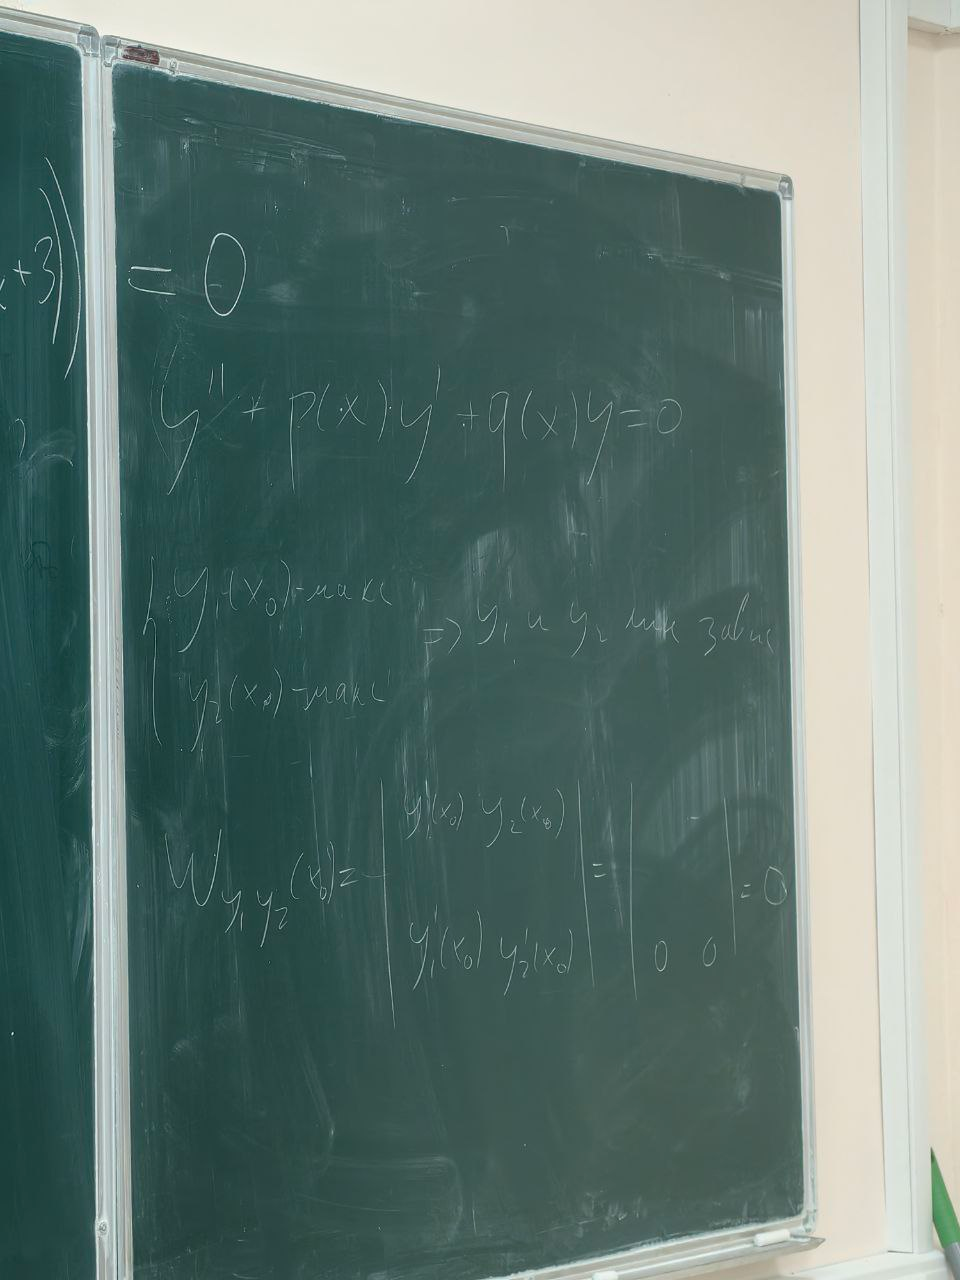 x+3)) = 0
y'' + p(x)y' + q(x)y = 0
{ y₁(x₀) - макс
y₂(x₀) - макс
=> y₁ и y₂ лин завис
W y₁ y₂ (x₀) = | y₁(x₀) y₂(x₀) | = | | = 0
| y₁'(x₀) y₂'(x₀) | | 0 0 |